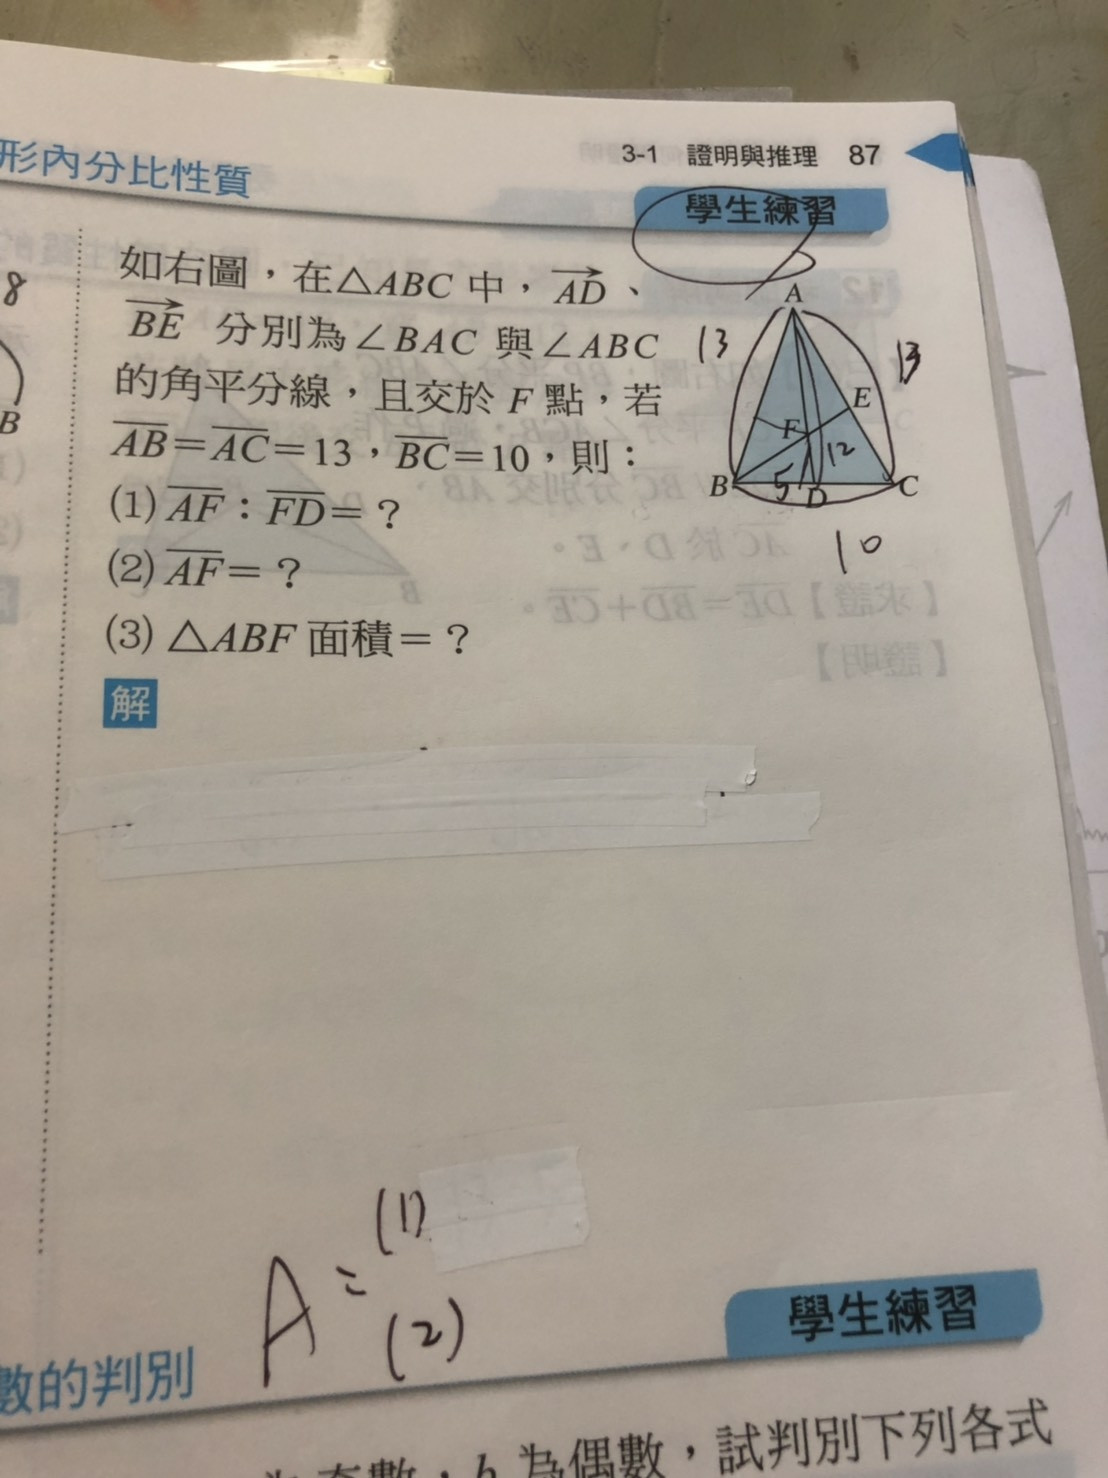 3-1 證明與推理 87
形內分比性質
學生練習
8
B
如右圖，在△ABC 中，AD、
BE 分別為∠BAC 與∠ABC
的角平分線，且交於 F 點，若
AB=AC=13，BC=10，則：
(1) AF：FD=？
(2) AF=？
(3) △ABF 面積=？
A
13
13
E
F
12
B
5
D
C
10
解
(1)
A=
(2)
學生練習
數的判別
為偶數，試判別下列各式